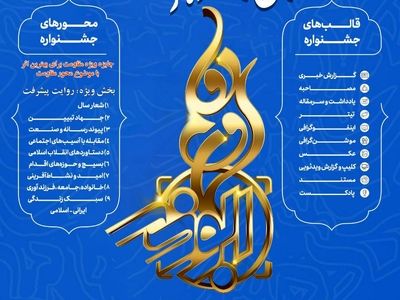 قالب‌های
جشنواره
گزارش خبری
مصاحبه
یادداشت و سرمقاله
تیتر
اینفوگرافی
موشن‌گرافی
عکس
کلیپ و گزارش ویدئویی
مستند
پادکست
ابوذر
محورهای
جشنواره
جایزه ویژه مقاومت برای بهترین اثر
با موضوع محور مقاومت
بخش ویژه: روایت پیشرفت
۱) شعار سال
۲) جهاد تبیین
۳) پیوند رسانه و صنعت
۴) مقابله با آسیب‌های اجتماعی
۵) دستاوردهای انقلاب اسلامی
۶) بسیج و حوزه‌های اقدام
۷) امید و نشاط‌آفرینی
۸) خانواده، جامعه، فرزندآوری
۹) سبک زندگی
ایرانی - اسلامی